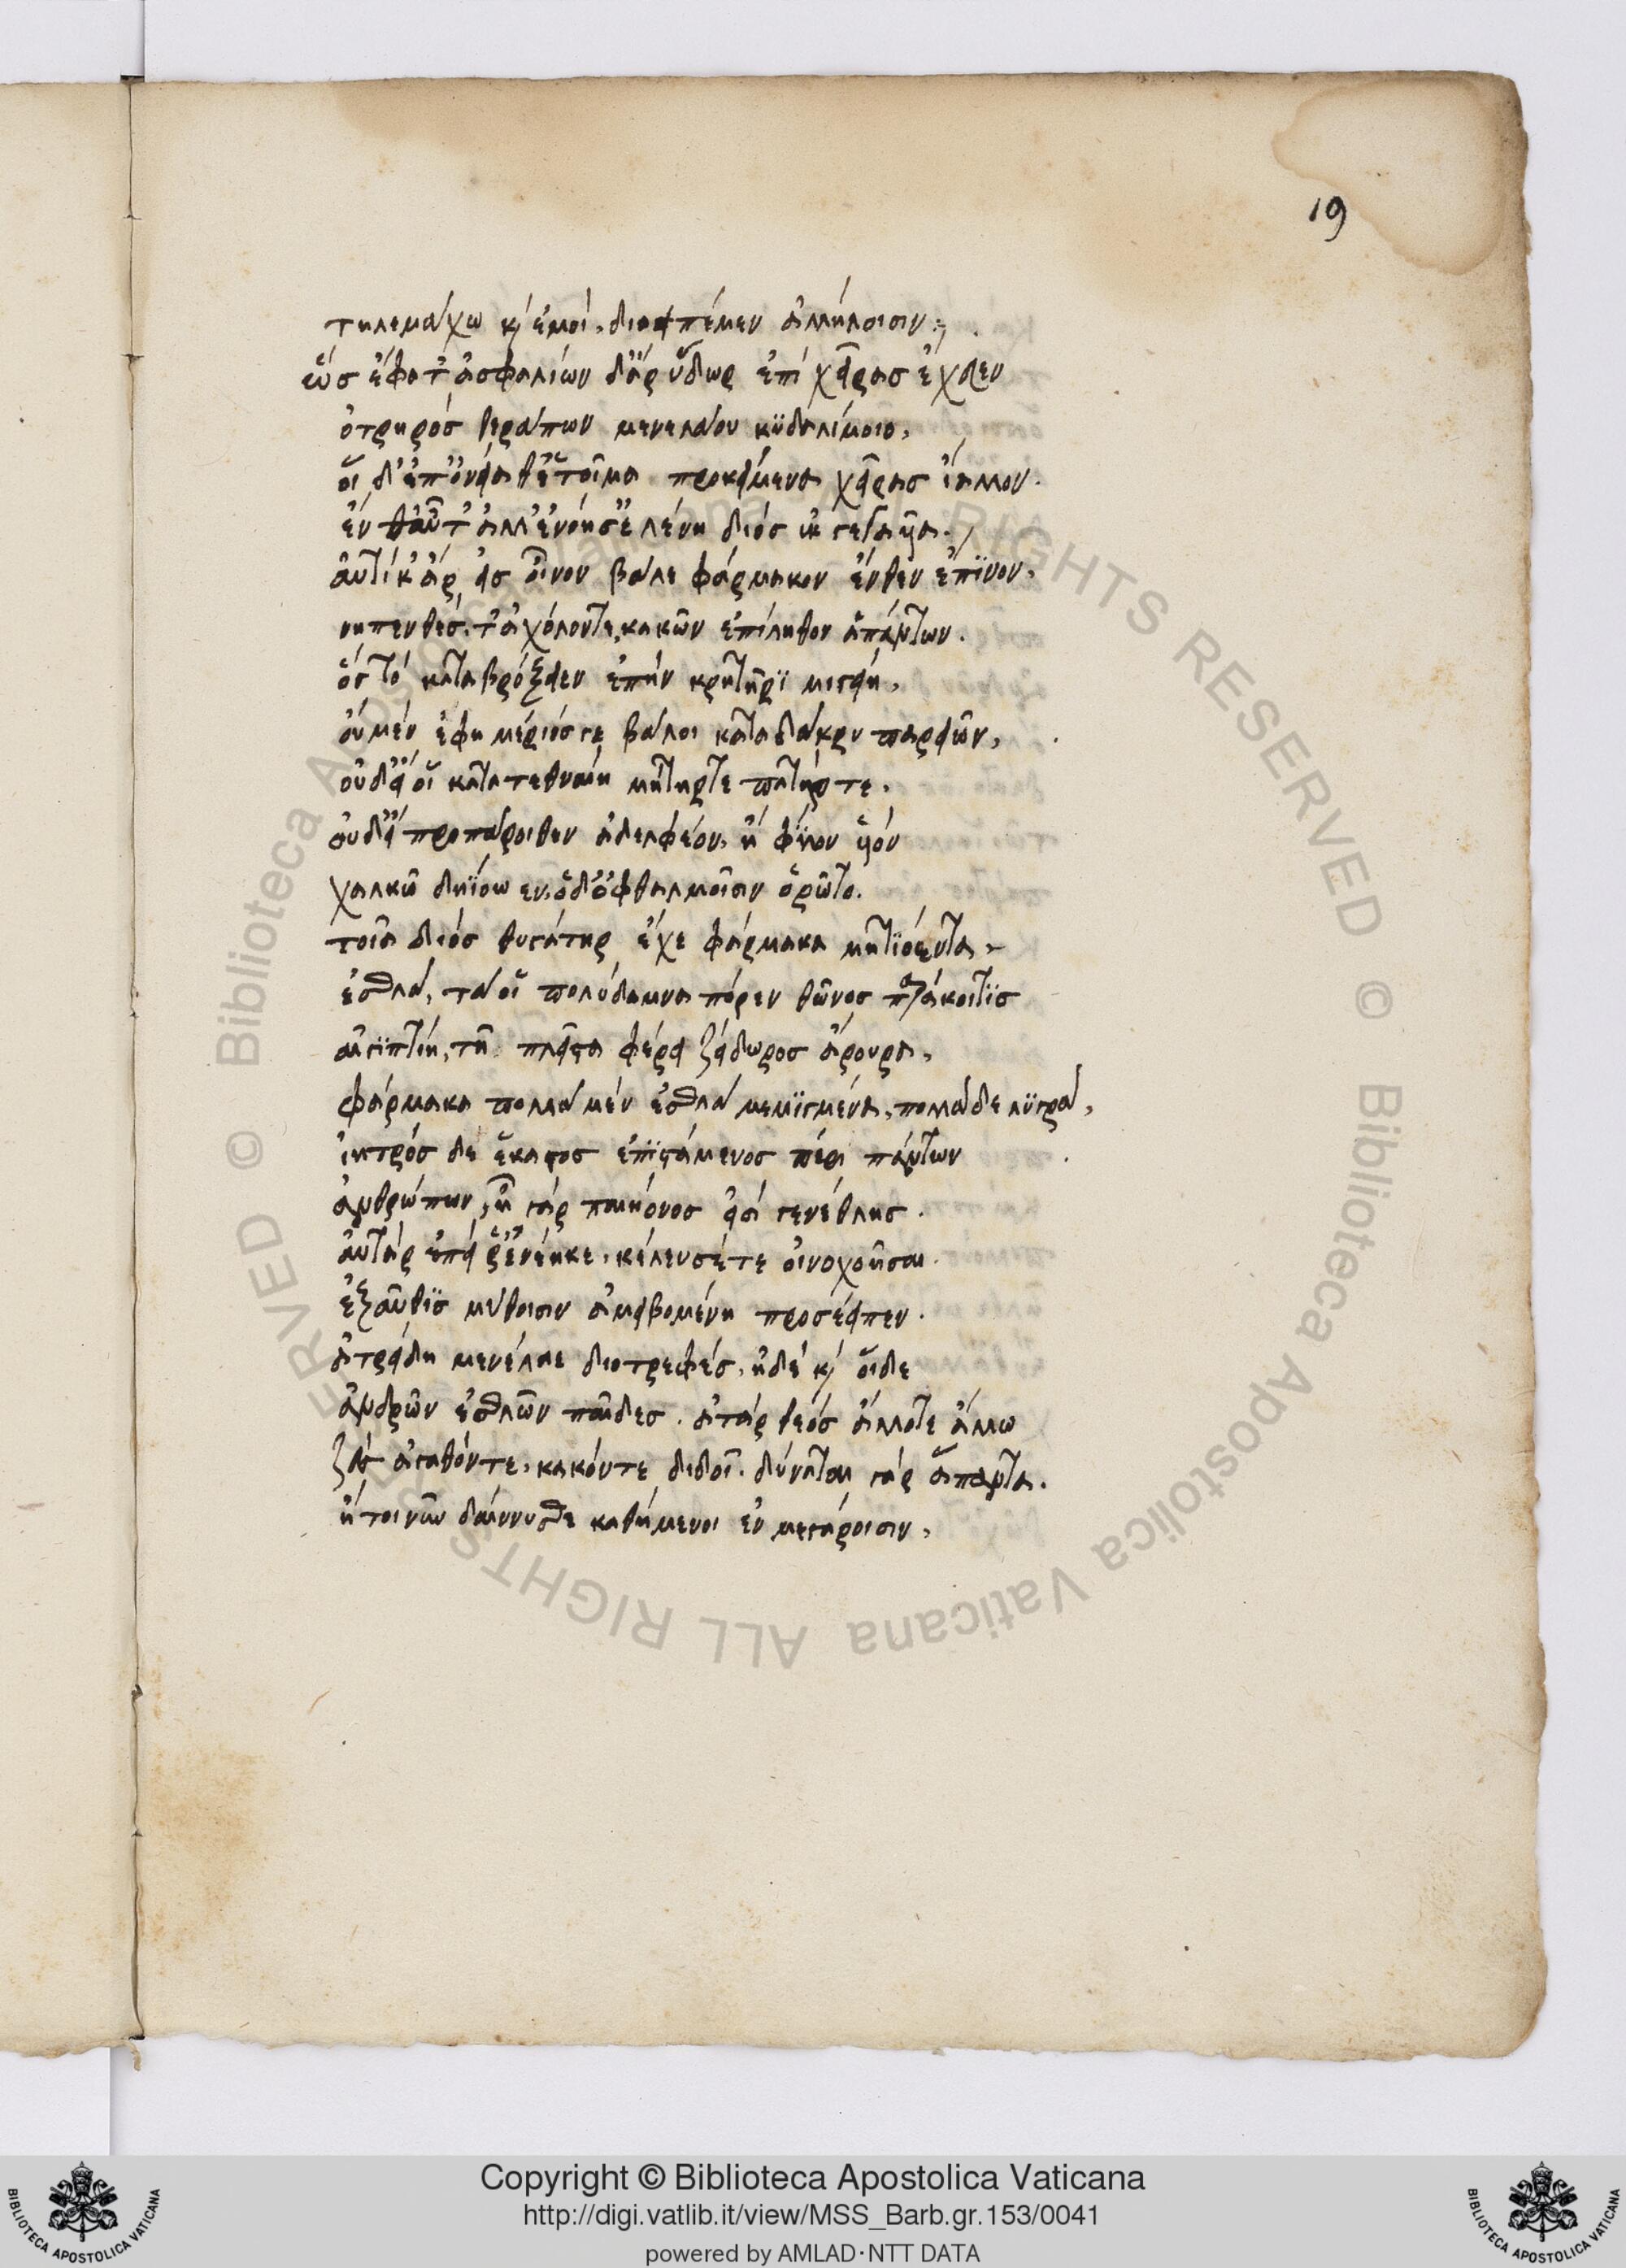 19
τηλεμάχω κ(αὶ) ἐμοί, διαειπέμεν ἀλλήλοισιν:
ὣς ἔφατ' ἀσφαλίων δ' ἄρ ὕδωρ ἐπὶ χεῖρας ἔχευεν
ὀτρηρὸς θεράπων μενελάου κϋδαλίμοιο,
οἳ δ' ἐπ' ὀνείαθ' ἑτοῖμα προκείμενα χεῖρας ἴαλλον.
ἔνθ' αὖτ' ἀλλ' ἐνόησ' ἑλένη διὸς ἐκγεγαυῖα.
αὐτίκ' ἄρ' εἰς οἶνον βάλε φάρμακον ἔνθεν ἔπϊνον,
νηπενθές τ' ἄχολόντε, κακῶν ἐπίληθον ἁπάντων.
ὃς τὸ καταβρόξειεν ἐπὴν κρητῆρϊ μιγείη,
οὐ μὲν ἐφημέριός γε βάλοι κατὰ δάκρυ παρειῶν,
οὐδ' εἴ οἱ κατατεθναίη μήτηρτε πατήρτε.
οὐδ' εἰ προπάροιθεν ἀδελφεὸν, ἢ φίλον υἱὸν
χαλκῶ δηϊόωεν, ὃδ' ὀφθαλμοῖσιν ὁρῶτο.
τοῖα διὸς θυγάτηρ ἔχε φάρμακα μητϊόεντα,
ἐσθλά, τά οἱ πολύδαμνα πόρεν θῶνος παράκοιτϊς
αἰγϋπτίη, τῆ πλεῖστα φέρει ζείδωρος ἄρουρα,
φάρμακα πολλὰ μὲν ἐσθλὰ μεμϊγμένα, πολλὰ δε λϋγρά,
ἰητρὸς δε ἕκαστος ἐπϊστάμενος περὶ πάντων
ἀνθρώπων, ἦ γὰρ παιήονος εἰσὶ γενέθλης.
αὐτὰρ ἐπεί ῥ' ἐνέηκε, κέλευσέ τε οἰνοχοῆσαι.
ἐξαῦθϊς μύθοισιν ἀμειβομένη προσέειπεν.
ἀτρείδη μενέλαε διοτρεφές, ἠδὲ κ(αὶ) οἵδε
ἀνδρῶν ἐσθλῶν παῖδες. ἀτὰρ θεὸς ἄλλοτε ἄλλω
ζεὺς ἀγαθόντε, κακόντε διδοῖ. δύναται γὰρ ἅπαντα.
ἤτοι νῦν δαίννυσθε καθήμενοι ἐν μεγάροισιν,
Copyright © Biblioteca Apostolica Vaticana
http://digi.vatlib.it/view/MSS_Barb.gr.153/0041
powered by AMLAD·NTT DATA
© Biblioteca Apostolica Vaticana ALL RIGHTS RESERVED
© Biblioteca Apostolica Vaticana ALL RIGHTS RESERVED
BIBLIOTECA APOSTOLICA VATICANA
BIBLIOTECA APOSTOLICA VATICANA